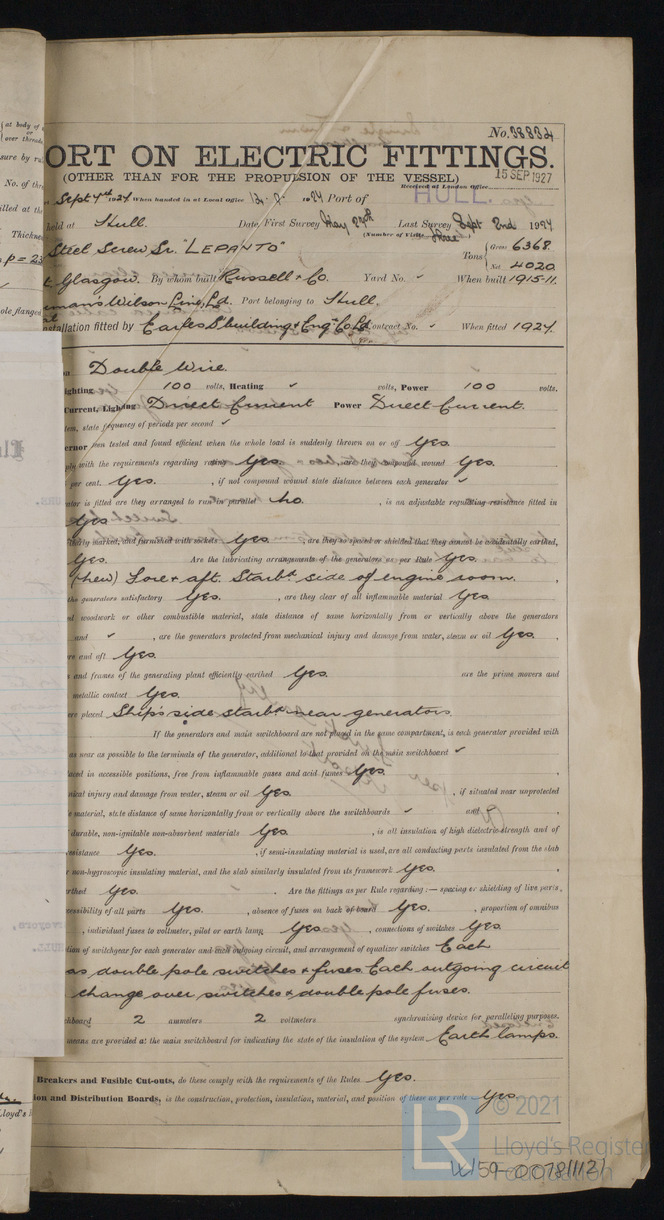 No. 38834
ORT ON ELECTRIC FITTINGS.
(OTHER THAN FOR THE PROPULSION OF THE VESSEL)
15 SEP 1927
Received at London Office
Sept 7th 1927 When handed in at Local Office 1927 Port of HULL.
held at Hull. Date, First Survey May 23rd Last Survey Sept 2nd 1927
(Number of Visits Three
Steel Screw Sr. "LEPANTO" Tons {Gross 6368.
Net 4020
Glasgow. By whom built Russell & Co. Yard No. ✓ When built 1915-11.
man's Wilson Line, Ld. Port belonging to Hull.
stallation fitted by Earles S'building & Eng Co Ld Contract No. ✓ When fitted 1927.
Double Wire.
ighting 100 volts, Heating ✓ volts, Power 100 volts.
Current, Lighting Direct Current Power Direct Current.
tem, state frequency of periods per second ✓
ernor een tested and found efficient when the whole load is suddenly thrown on or off Yes.
ply with the requirements regarding rating Yes. , are they compound wound Yes.
per cent. Yes. , if not compound wound state distance between each generator ✓
ator is fitted are they arranged to run in parallel No. , is an adjustable regulating resistance fitted in
Yes
early marked, and furnished with sockets Yes. , are they so spaced or shielded that they cannot be accidentally earthed,
Yes. Are the lubricating arrangements of the generators as per Rule Yes.
(New) Fore & aft. Starbt side of engine room.
the generators satisfactory Yes. , are they clear of all inflammable material Yes.
d woodwork or other combustible material, state distance of same horizontally from or vertically above the generators
and ✓ , are the generators protected from mechanical injury and damage from water, steam or oil Yes.
re and aft Yes.
and frames of the generating plant efficiently earthed Yes. are the prime movers and
metallic contact Yes.
ere placed Ship's side starbt near generators.
If the generators and main switchboard are not placed in the same compartment, is each generator provided with
as near as possible to the terminals of the generator, additional to that provided on the main switchboard ✓
laced in accessible positions, free from inflammable gases and acid fumes Yes.
ical injury and damage from water, steam or oil Yes. , if situated near unprotected
material, state distance of same horizontally from or vertically above the switchboards ✓ and ✓
durable, non-ignitable non-absorbent materials Yes. , is all insulation of high dielectric strength and of
esistance Yes. , if semi-insulating material is used, are all conducting parts insulated from the slab
non-hygroscopic insulating material, and the slab similarly insulated from its framework Yes.
arthed Yes. Are the fittings as per Rule regarding:— spacing or shielding of live parts,
cessibility of all parts Yes. , absence of fuses on back of board Yes. , proportion of omnibus
, individual fuses to voltmeter, pilot or earth lamp Yes. , connections of switches Yes.
tion of switchgear for each generator and each outgoing circuit, and arrangement of equalizer switches Each
as double pole switches & fuses. Each outgoing circuit
change over switches & double pole fuses.
chboard 2 ammeters 2 voltmeters synchronising device for paralleling purposes.
means are provided at the main switchboard for indicating the state of the insulation of the system Earth lamps.
Breakers and Fusible Cut-outs, do these comply with the requirements of the Rules Yes.
ion and Distribution Boards, is the construction, protection, insulation, material, and position of these as per rule Yes.
© 2021
Lloyd's Register
Foundation
LR
W159-0078(1/2)